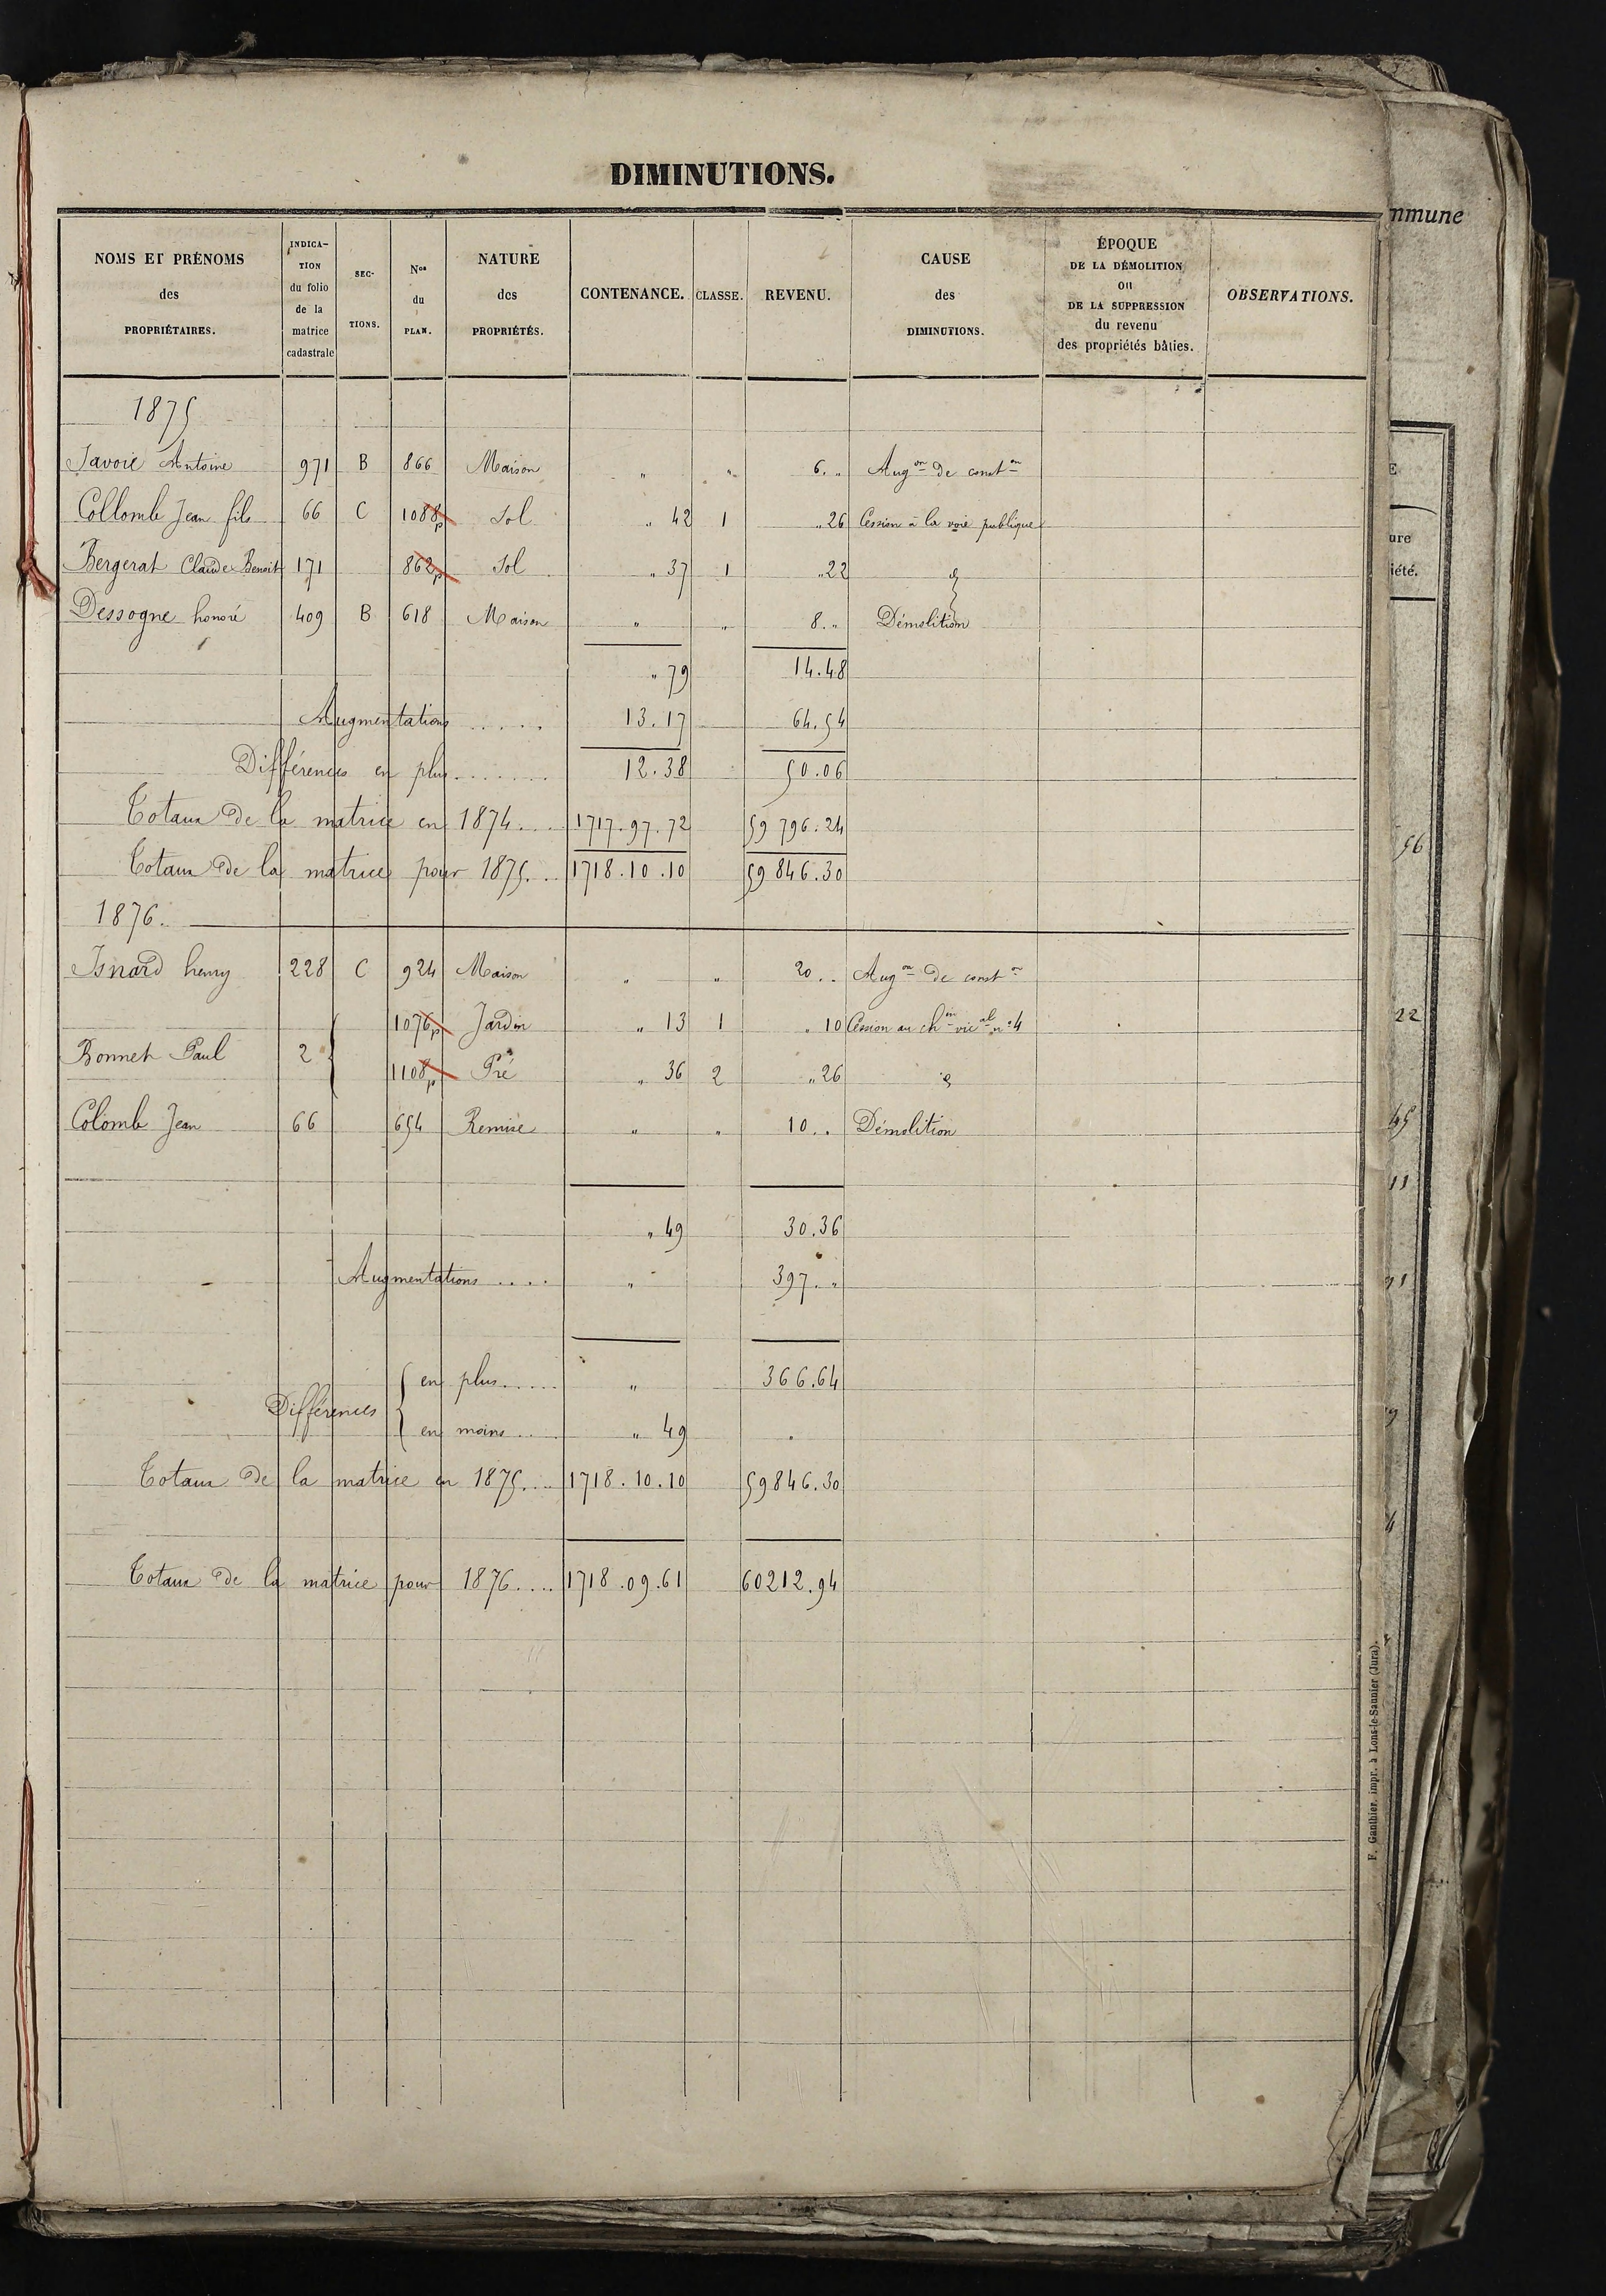 DIMINUTIONS.
NOMS ET PRÉNOMS des PROPRIÉTAIRES. | INDICATION du folio de la matrice cadastrale | SECTIONS. | Nos du PLAN. | NATURE des PROPRIÉTÉS. | CONTENANCE. | CLASSE. | REVENU. | CAUSE des DIMINUTIONS. | ÉPOQUE DE LA DÉMOLITION OU DE LA SUPPRESSION du revenu des propriétés bâties. | OBSERVATIONS.
1875
Savoie Antoine 971 B 866 Maison " " 6. " Augon de conston
Collomb Jean fils 66 C 1088p Sol " 42 1 " 26 Cession à la voie publique
Bergerat Claude Benoit 171 862p Sol " 37 1 " 22 d
Dessogne honoré 409 B 618 Maison " " 8. " Démolition
" 79 14.48
Augmentations ..... 13.17 64.54
Différences en plus ....... 12.38 50.06
Totaux de la matrice en 1874.... 1717.97.72 59 796.24
Totaux de la matrice pour 1875... 1718.10.10 59 846.30
1876.
Isnard henry 228 C 924 Maison " " 20. . Augon de conston
1076p Jardin " 13 1 " 10 Cession au chin vical n° 4
Bonnet Paul 2
1108p Pré " 36 2 " 26 d
Colomb Jean 66 654 Remise " " 10. . Démolition
" 49 30.36
Augmentations .... " 397. "
en plus..... " 366.64
Différences
en moins.... " 49 "
Totaux de la matrice en 1875.... 1718.10.10 59846.30
Totaux de la matrice pour 1876.... 1718.09.61 60212.94
F. Gauthier, impr. à Lons-le-Saunier (Jura).
mmune
E
ure
iété.
56
22
45
11
9
4